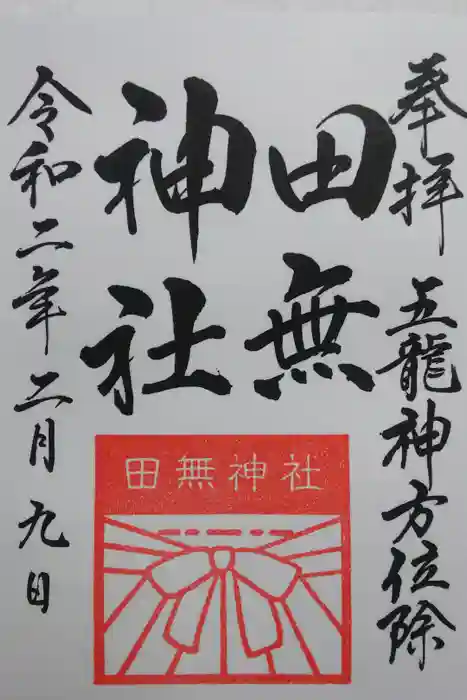 奉拝 五龍神方位除
田無
神社
令和二年二月九日
田無神社